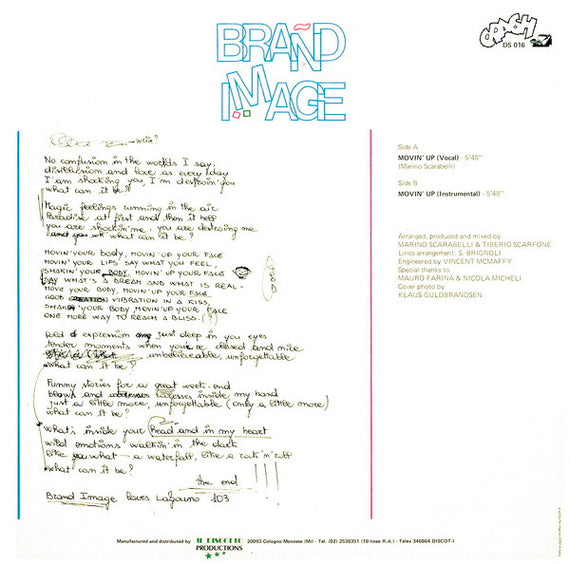 BRAND
IMAGE
CRASH
DS 016
No confusion in the worlds I say,
disillusion and love as every day
I am shocking you, I'm destroin' you
what can it be?
Magic feelings running in the air
Paradise at first and then it hell
you are shockin' me, you are destroing me
and you what can it be?
MOVIN' YOUR BODY, MOVIN' UP YOUR FACE
MOVIN' YOUR LIPS SAY WHAT YOU FEEL,
SHAKIN' YOUR BODY, MOVIN' UP YOUR FACE
SAY WHAT'S A DREAM AND WHAT IS REAL -
MOVE YOUR BODY, MOVIN' UP YOUR FACE
GOOD VIBRATION IN A KISS,
SHAKIN' YOUR BODY, MOVIN' UP YOUR FACE
ONE MORE WAY TO REACH A BLISS. (?)
GOOD
of expression just deep in you eyes
tender moments when you're closed and mine
unbelievable, unforgettable
what can it be?
Funny stories for a great week-end
blows and caresses inside my hand
just a little more, unforgettable (only a little more)
what can it be?
what's inside your head and in my heart
wild emotions walkin' in the dark
like you what - a waterfall, like a rock'n'roll
what can it be?
the end !!!
Brand Image loves 103
Side A
MOVIN' UP (Vocal) - 5'48"
(Marino Scarabelli)
Side B
MOVIN' UP (Instrumental) - 5'48"
Arranged, produced and mixed by
MARINO SCARABELLI & TIBERIO SCARFONE
Lyrics arrangement: S. BRIGNOLI
Engineered by VINCENT MCMAFFY
Special thanks to
MAURO FARINA & NICOLA MICHELI
Cover photo by
KLAUS GULDBRANDSEN
Manufactured and distributed by IL DISCOTTO PRODUCTIONS 20093 Cologno Monzese (Mi) - Tel. (02) 2538351 (10 linee R.A.) - Telex 340864 DISCOT-I